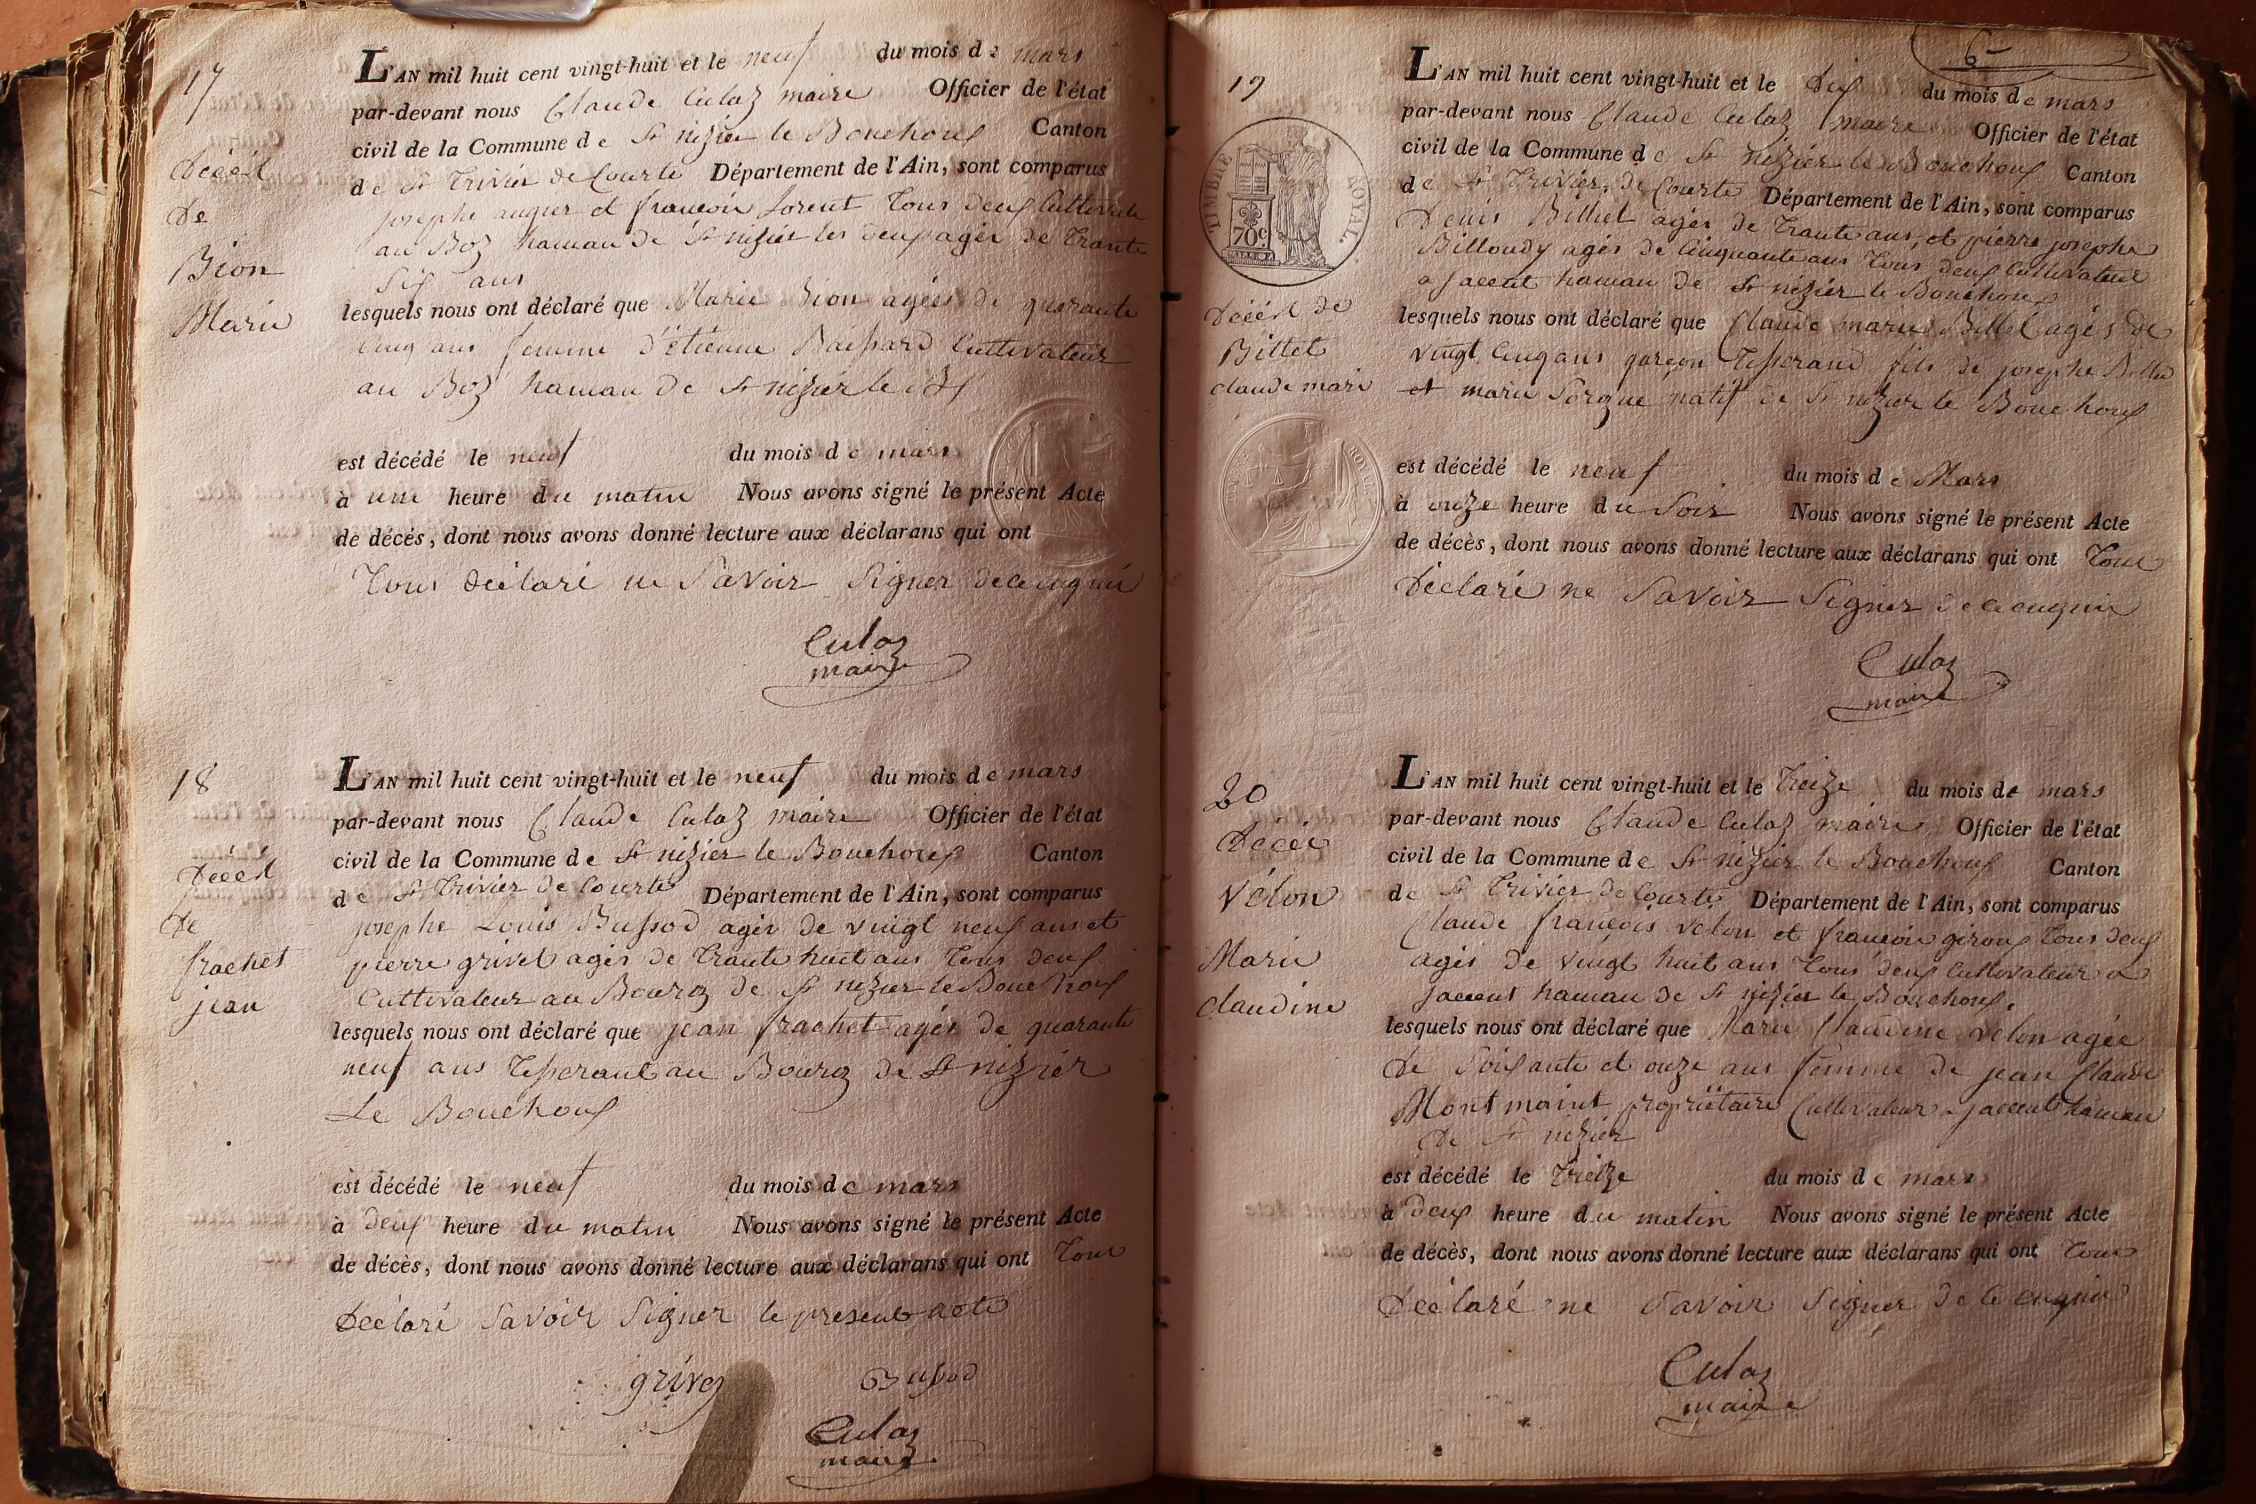 17
Décéd
De
Bion
Marie
L'AN mil huit cent vingt-huit et le neuf du mois de mars
par-devant nous Claude Culaz maire Officier de l'état
civil de la Commune de St nizier le Bouchoux Canton
de St Trivier de Courte Département de l'Ain, sont comparus
josephe auguer et francois Lorent Tous deux Cultivate
au Boz hamau de St nizier les deux agés de Trante
Six ans
lesquels nous ont déclaré que Marie Bion agées de quarante
cinq ans femme d'étienne Baissard Cultivateur
au Boz hamau de St nizier le
est décédé le neuf du mois de mars
à une heure du matin Nous avons signé le présent Acte
de décès, dont nous avons donné lecture aux déclarans qui ont
Tous déclaré ne Savoir Signer de ce enquis
Culaz
maire
18
Décéd
De
frachet
jean
L'AN mil huit cent vingt-huit et le neuf du mois de mars
par-devant nous Claude Culaz maire Officier de l'état
civil de la Commune de St nizier le Bouchoux Canton
de St Trivier de Courte Département de l'Ain, sont comparus
josephe Louis Bussod agés de vingt neuf ans et
pierre grivel agés de Trante huit ans Tous deux
Cultivateur au Bourg de St nizier le Bouchoux
lesquels nous ont déclaré que jean frachet agés de quarante
neuf ans Tisserant au Bourg de St nizier
Le Bouchoux
est décédé le neuf du mois de mars
à deux heure du matin Nous avons signé le présent Acte
de décès, dont nous avons donné lecture aux déclarans qui ont Tous
Déclaré Savoir Signer le present acte
grivez Bussod
Culaz
maire
6
19
TIMBRE ROYAL.
70c
Décéd de
Billet
claude mari
L'AN mil huit cent vingt-huit et le Dix du mois de mars
par-devant nous Claude Culaz maire Officier de l'état
civil de la Commune de St nizier le Bouchoux Canton
de St Trivier de Courte Département de l'Ain, sont comparus
Denis Billiet agés de Trante ans, et pierre josephe
Billoudy agés de Cinquante ans Tous deux Cultivateur
a jacent hamau de St nizier le Bouchoux
lesquels nous ont déclaré que Claude marie Billet agés de
vingt Cinq ans garçon Tisserand fils de josephe Billet
et marie Sorgue natif de St nizier le Bouchoux
est décédé le neuf du mois de Mars
à onze heure du Soir Nous avons signé le présent Acte
de décès, dont nous avons donné lecture aux déclarans qui ont Tous
Déclaré ne Savoir Signer de ce enquis
Culaz
maire
20
Décéé
Vélon
Marie
claudine
L'AN mil huit cent vingt-huit et le Treize du mois de mars
par-devant nous Claude Culaz maire Officier de l'état
civil de la Commune de St nizier le Bouchoux Canton
de St Trivier de Courte Département de l'Ain, sont comparus
Claude françois vélon et françois giroux Tous deux
agés de vingt huit ans Tous deux Cultivateur a
jacent hamau de St nizier le Bouchoux.
lesquels nous ont déclaré que Marie Claudine vélon agée
de Soisante et onze ans femme de jean Claude
Mont moint propriétaire Cultivateur a jacent hamau
de St nizier
est décédé le Treize du mois de mars
à deux heure du matin Nous avons signé le présent Acte
de décès, dont nous avons donné lecture aux déclarans qui ont Tous
Déclaré ne Savoir Signer de ce enquis
Culaz
maire